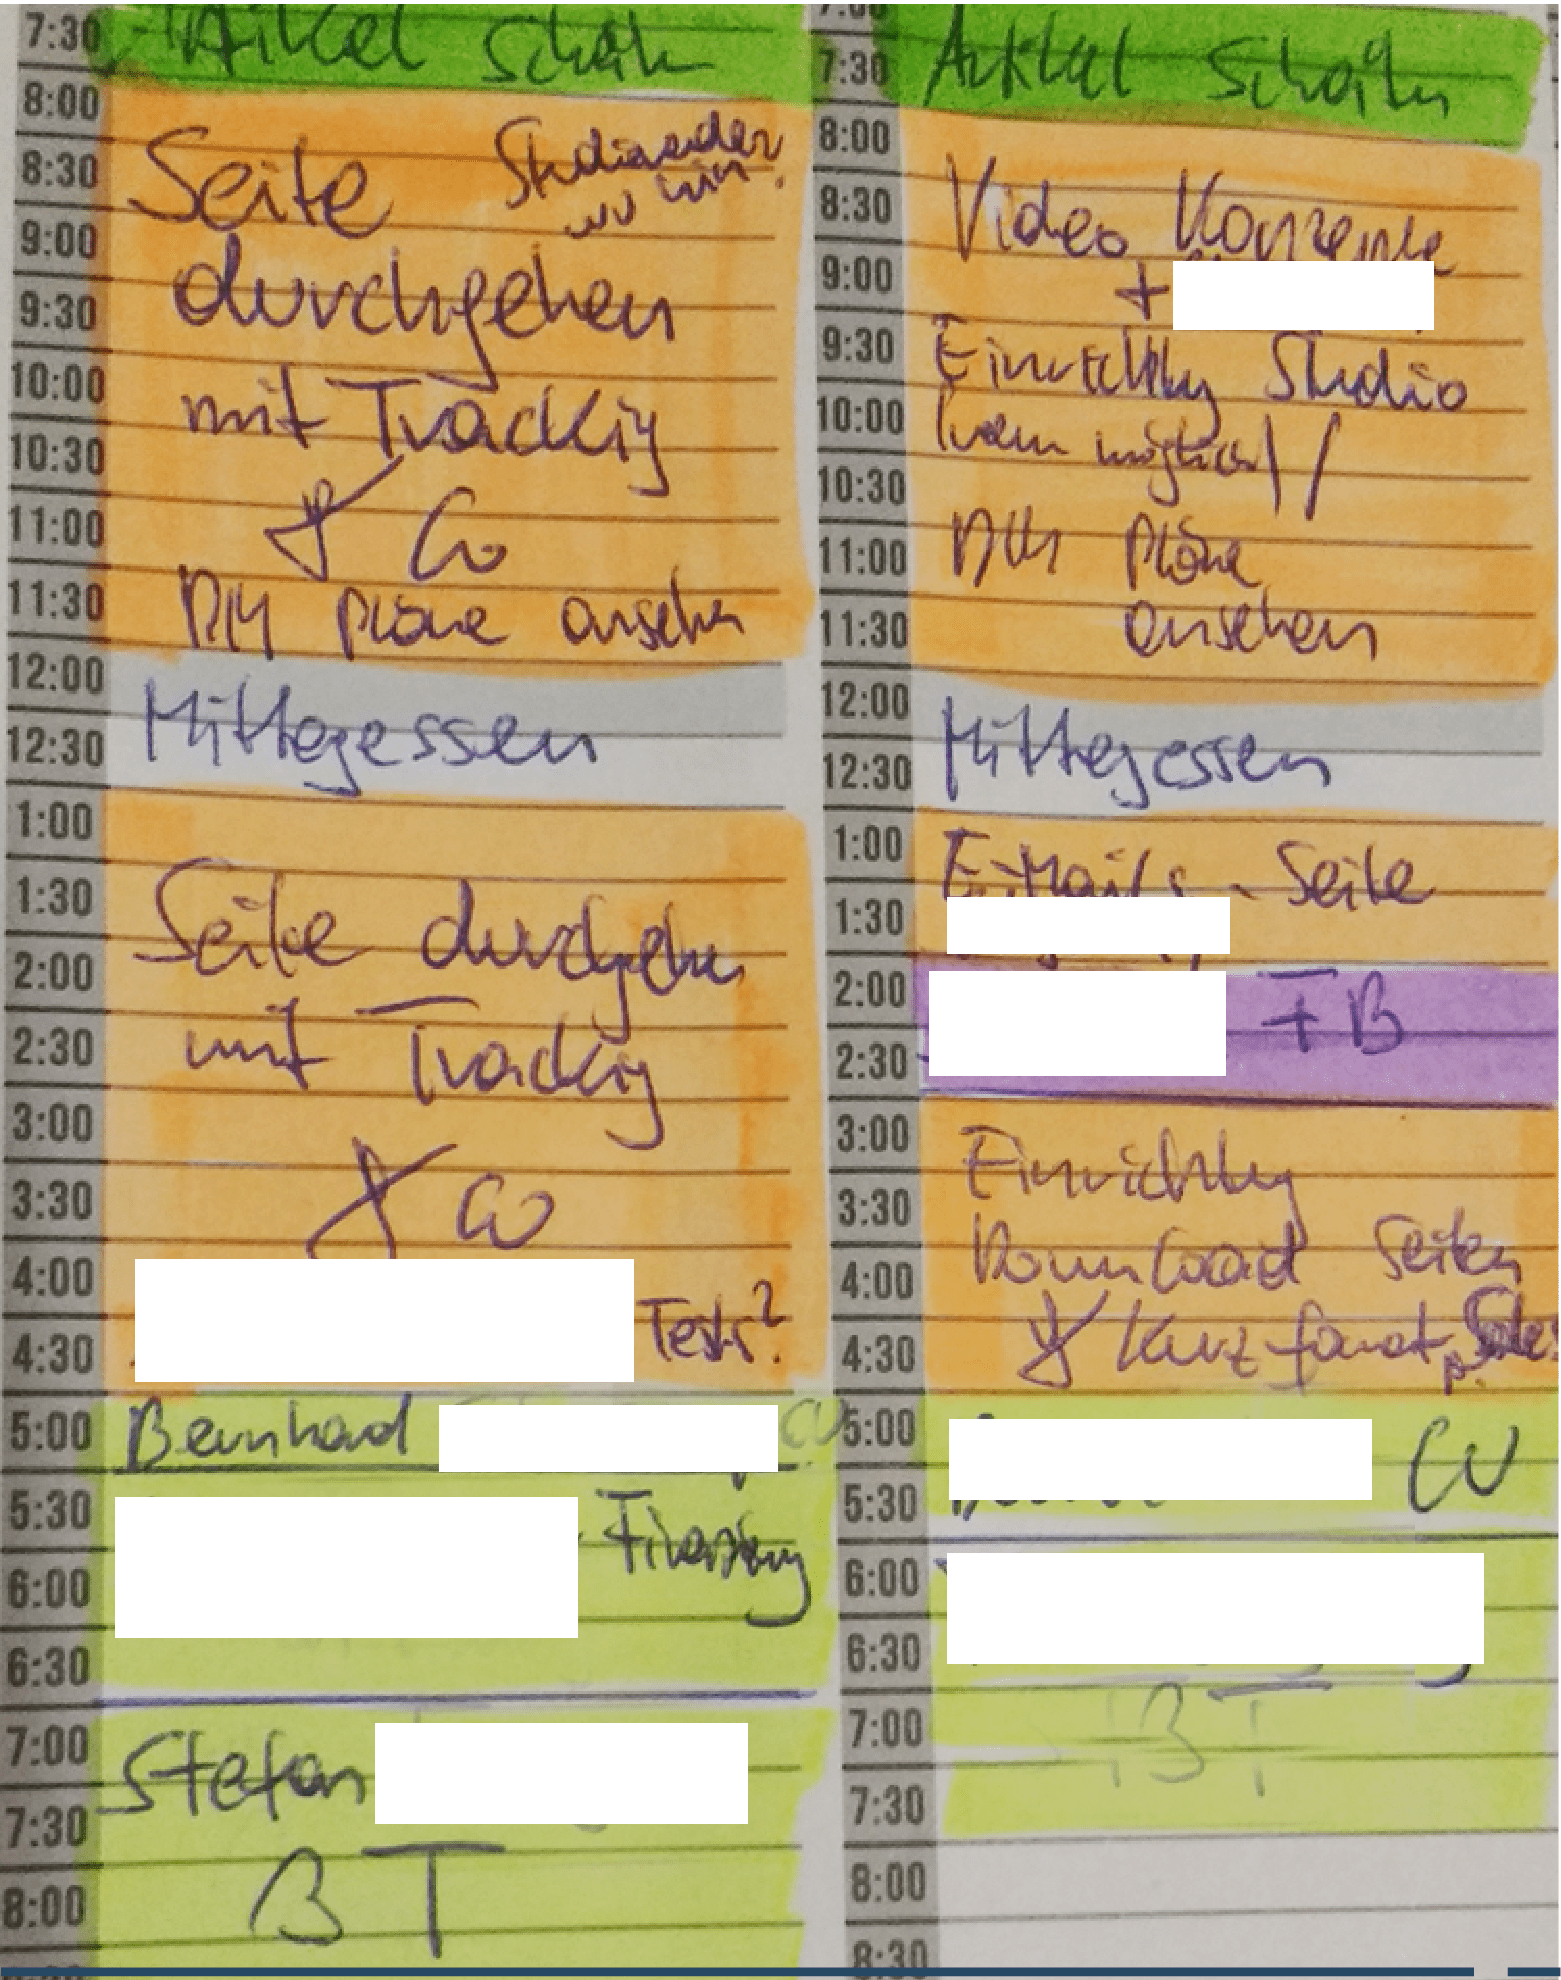 7:30
8:00
8:30
9:00
9:30
10:00
10:30
11:00
11:30
12:00
12:30
1:00
1:30
2:00
2:30
3:00
3:30
4:00
4:30
5:00
5:30
6:00
6:30
7:00
7:30
8:00
Artikel
Seite
durchgehen
mit Tracking
& Co
DM Pläne ansehen
Mittagessen
Seite durchgehen
mit Tracking
& Co
Tests?
Bernhard
Stefan
BT
7:00
7:30
8:00
8:30
9:00
9:30
10:00
10:30
11:00
11:30
12:00
12:30
1:00
1:30
2:00
2:30
3:00
3:30
4:00
4:30
5:00
5:30
6:00
6:30
7:00
7:30
8:00
8:30
Artikel
Video Konzepte
+
Einrichtung Studio
(wenn möglich) /
DM Pläne
ansehen
Mittagessen
E-Mails - Seite
FB
Einrichtung
Download Seiten
& Kurzformat
CW
BT